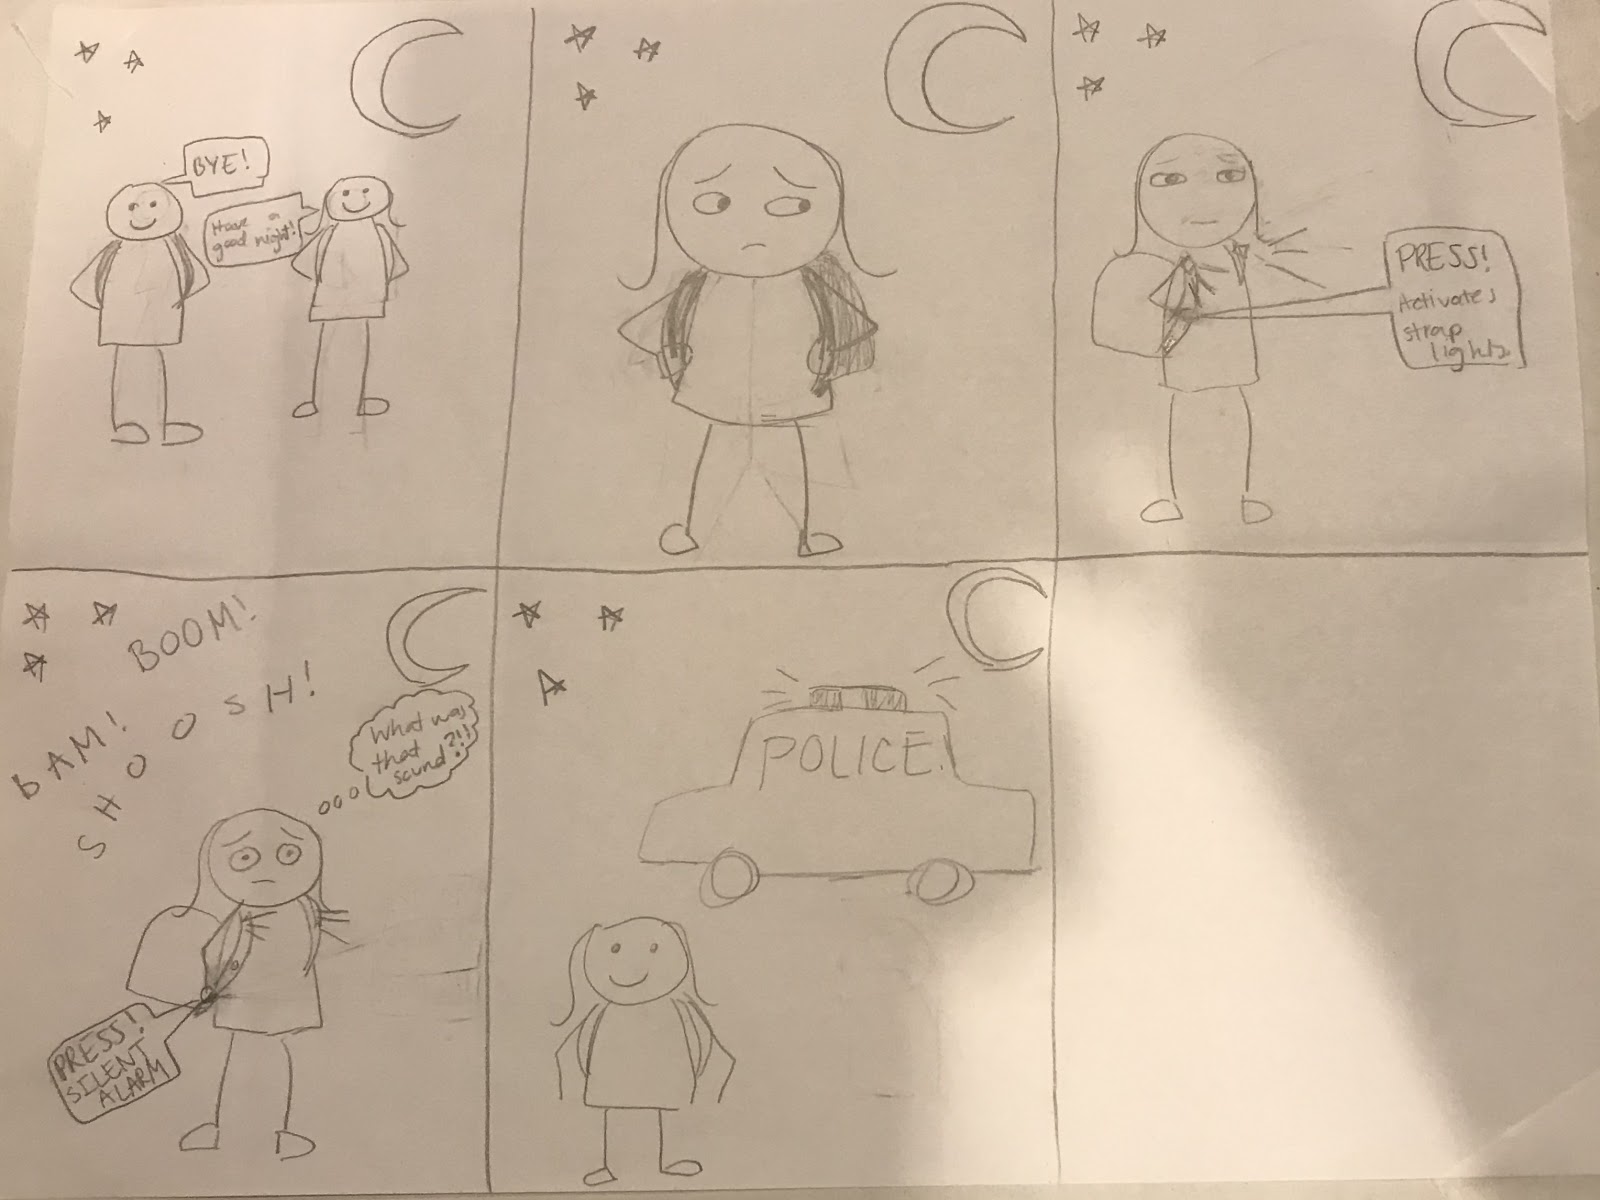 BYE!
Have a
good night!
PRESS!
Activates
strap
lights.
BOOM!
BAM!
SHOOOSH!
What was
that
sound?!!
PRESS!
SILENT
ALARM
POLICE!